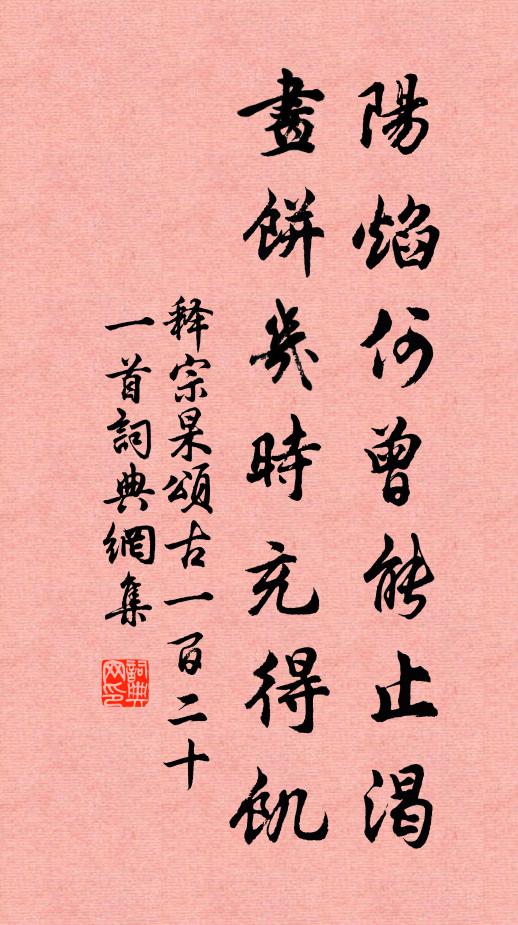 陽焰何曾能止渴
畫餅幾時充得飢
释宗杲頌古一百二十
一首詞典網集
詞典網印